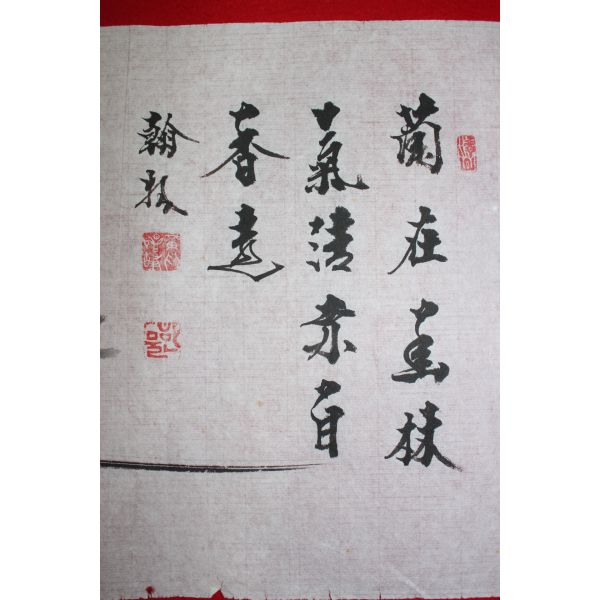 蘭在幽林
氣清亦自
香遠
翰